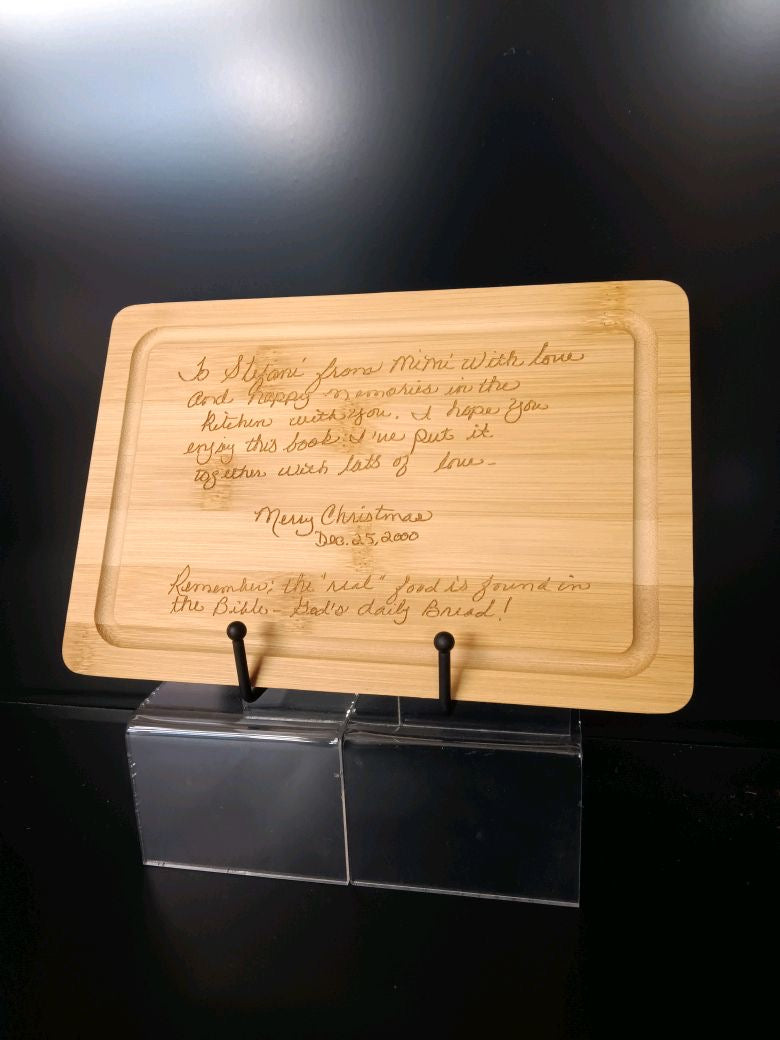 To Stefani from Mimi with love
and happy memories in the
kitchen with you. I hope you
enjoy this book I've put it
together with lots of love-
Merry Christmas
Dec. 25, 2000
Remember: the "real" food is found in
the Bible - God's daily Bread!